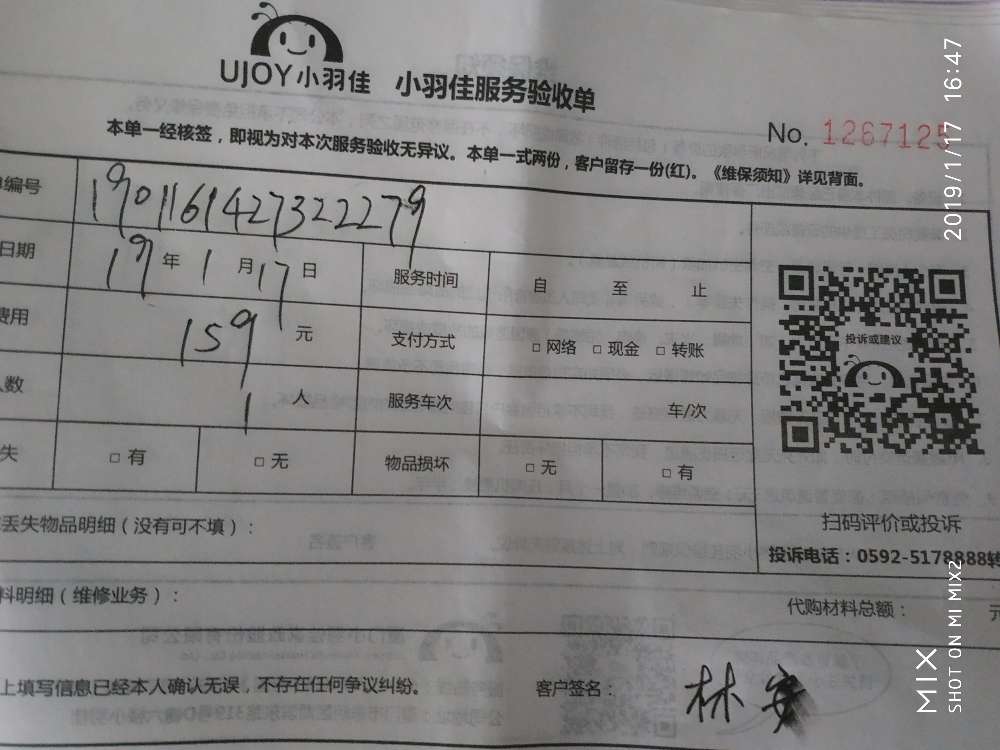 UJOY小羽佳 小羽佳服务验收单
No. 1267125
本单一经核签，即视为对本次服务验收无异议。本单一式两份，客户留存一份(红)。《维保须知》详见背面。
单编号 1901161427322279
日期 19年1月17日 服务时间 自 至 止
费用 159元 支付方式 □网络 □现金 □转账
人数 1人 服务车次 车/次
失 □有 □无 物品损坏 □无 □有
投诉或建议
扫码评价或投诉
投诉电话：0592-5178888转
丢失物品明细（没有可不填）：
料明细（维修业务）： 代购材料总额： 元
上填写信息已经本人确认无误，不存在任何争议纠纷。 客户签名： 林安
2019/1/17 16:47
MIX
SHOT ON MI MIX2